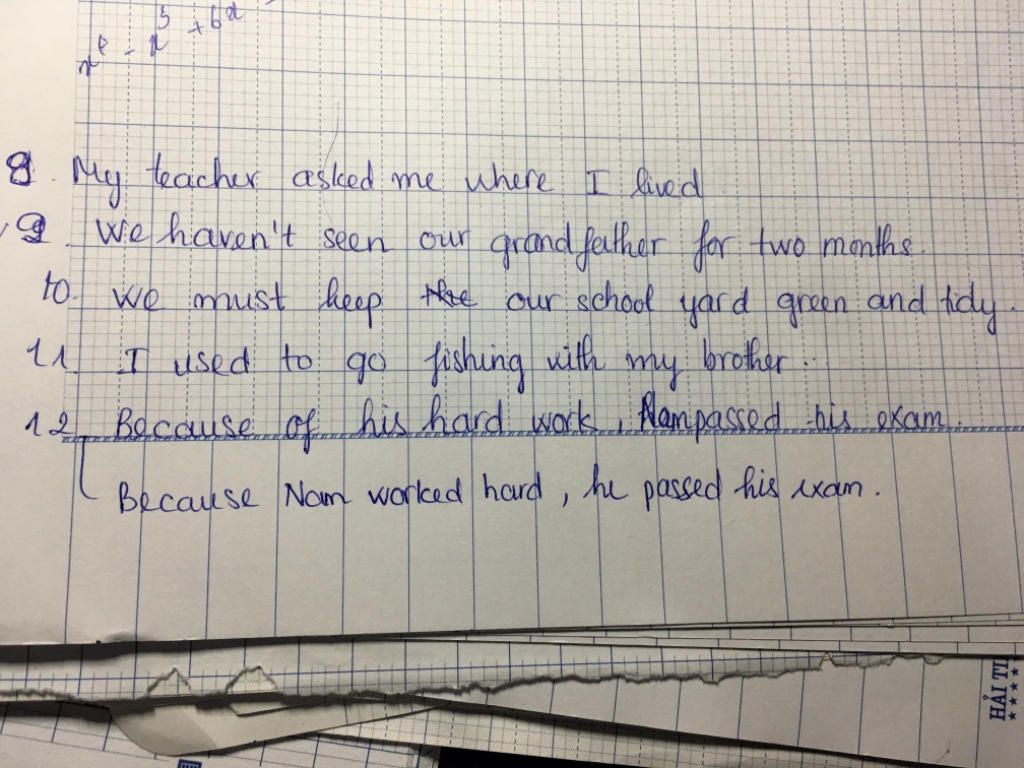 8. My teacher asked me where I lived
9. We haven't seen our grandfather for two months.
10. We must keep the our school yard green and tidy.
11. I used to go fishing with my brother.
12. Because of his hard work, Nam passed his exam.
Because Nam worked hard, he passed his exam.
HẢI TI